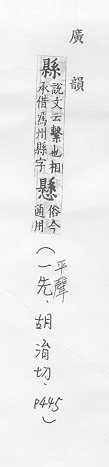 廣韻
縣說文云繫也相
承借為州縣字懸俗今
通用
(平聲
一先,胡涓切,P445)